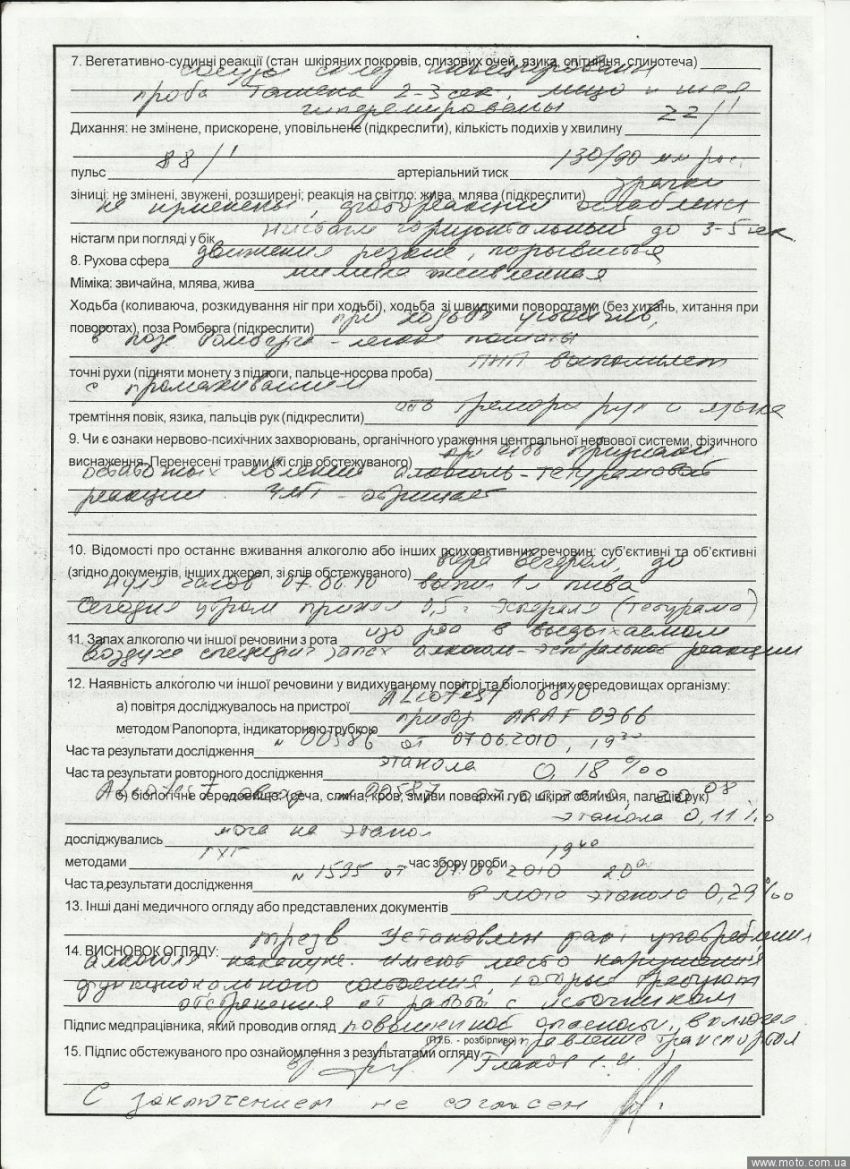 7. Вегетативно-судинні реакції (стан шкіряних покровів, слизових очей, язика, спітніння, слинотеча)
сосуды склер инъецированы
проба Ташена 2-3 сек, лицо и шея
гиперемированы
Дихання: не змінене, прискорене, уповільнене (підкреслити), кількість подихів у хвилину 22/1'
пульс 88/1' артеріальний тиск 130/90 мм рт.
зіниці: не змінені, звужені, розширені; реакція на світло: жива, млява (підкреслити) зрачки
не изменены, фотореакции ослаблены
ністагм при погляді у бік нистагм горизонтальный до 3-5 сек
8. Рухова сфера движения резкие, порывистые
Міміка: звичайна, млява, жива мимика оживленная
Ходьба (коливаюча, розкидування ніг при ходьбі), ходьба зі швидкими поворотами (без хитань, хитання при
поворотах), поза Ромберга (підкреслити) при ходьбе
в позе Ромберга - легкое
точні рухи (підняти монету з підлоги, пальце-носова проба) ПНП выполняет
с промахиванием
тремтіння повік, язика, пальців рук (підкреслити) тремора рук и языка
9. Чи є ознаки нервово-психічних захворювань, органічного ураження центральної нервової системи, фізичного
виснаження. Перенесені травми (зі слів обстежуваного) признаки
явлений алкоголь-тетурамовой
реакции. ЧМТ - отрицает
10. Відомості про останнє вживання алкоголю або інших психоактивних речовин: суб'єктивні та об'єктивні
(згідно документів, інших джерел, зі слів обстежуваного) вчера вечером, до
нуля часов 07.06.10 выпил 1 л пива
Сегодня утром принял 0,5 г Эспераля (тетурама)
11. Запах алкоголю чи іншої речовини з рота изо рта в выдыхаемом
воздухе специфич запах алкоголь-эсперальной реакции
12. Наявність алкоголю чи іншої речовини у видихуваному повітрі та біологічних середовищах організму:
а) повітря досліджувалось на пристрої Alcotest 6810
методом Рапопорта, індикаторною трубкою прибор ARAF 0366
Час та результати дослідження № 00586 от 07.06.2010, 19
этанола 0,18 ‰
Час та результати повторного дослідження
Alcotest № 00587 07.06.2010, 20 08
б) біологічне середовище: (сеча, слина, кров, змиви поверхні губ, шкіри обличчя, пальців рук)
этанола 0,11 ‰
досліджувались моча на этанол
методами ГХГ час збору проби 19 40
Час та результати дослідження № 1595 от 07.06.2010 20
в моче этанола 0,29 ‰
13. Інші дані медичного огляду або представлених документів
14. ВИСНОВОК ОГЛЯДУ: трезв. Установлен факт употребления
алкоголя накануне. Имеют место нарушения
функционального состояния, которые требуют
отстранения от работы с источником
Підпис медпрацівника, який проводив огляд повышенной опасности, включая
(П.І.Б. - розбірливо) управление транспортом
15. Підпис обстежуваного про ознайомлення з результатами огляду
С заключением не согласен
www.moto.com.ua